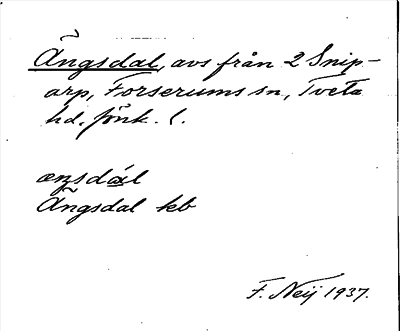 Ängsdal, avs från 2 Snip-
arp, Forserums sn, Tveta
hd, Jönk. l.
æŋsdál
Ängsdal kb
F. Neij 1937.